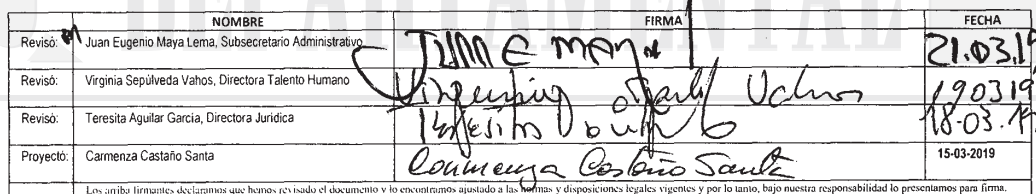 DEPARTAMENTAL
NOMBRE FIRMA FECHA
Revisó: Juan Eugenio Maya Lema, Subsecretario Administrativo 21.03.19
Revisó: Virginia Sepúlveda Vahos, Directora Talento Humano 190319
Revisó: Teresita Aguilar García, Directora Jurídica 18-03.19
Proyectó: Carmenza Castaño Santa Carmenza Castaño Santa 15-03-2019
Los arriba firmantes declaramos que hemos revisado el documento y lo encontramos ajustado a las normas y disposiciones legales vigentes y por lo tanto, bajo nuestra responsabilidad lo presentamos para firma.